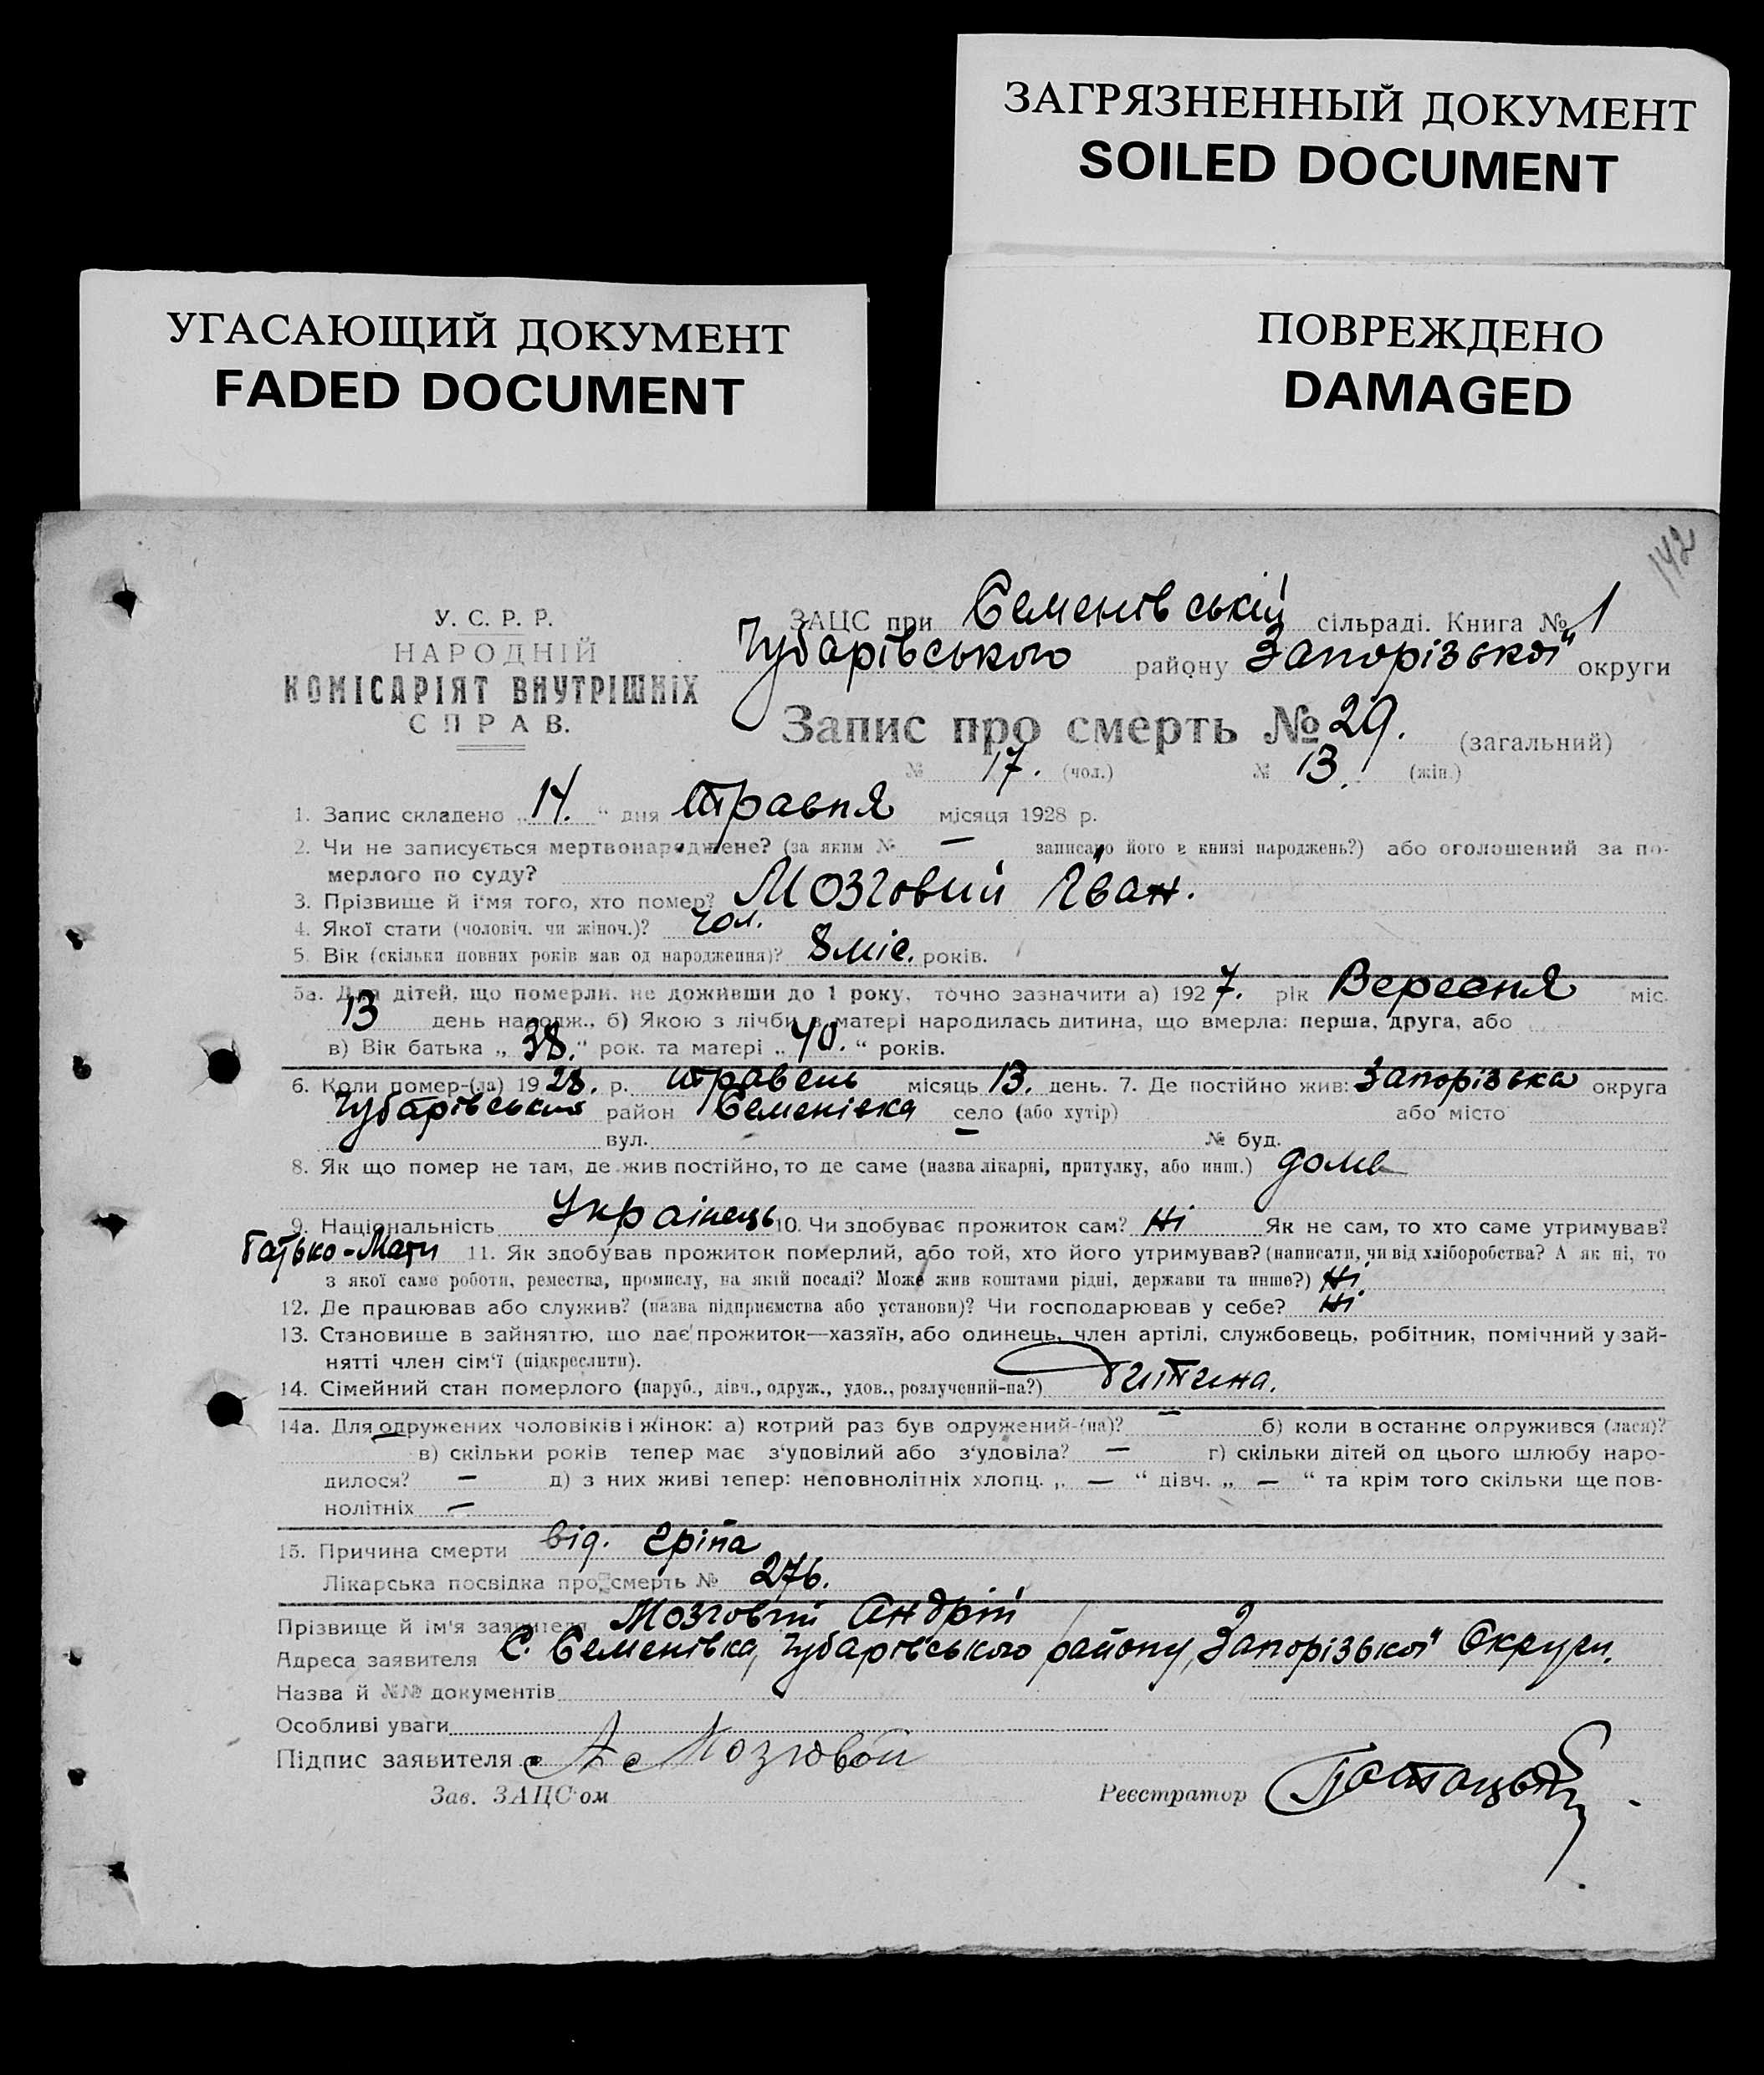 ЗАГРЯЗНЕННЫЙ ДОКУМЕНТ
SOILED DOCUMENT
УГАСАЮЩИЙ ДОКУМЕНТ
FADED DOCUMENT
ПОВРЕЖДЕНО
DAMAGED
142
У. С. Р. Р.
НАРОДНІЙ
КОМІСАРІЯТ ВНУТРІШНІХ
СПРАВ.
ЗАЦС при Семенівській сільраді. Книга № 1
Чубарівського району Запорізької округи
Запис про смерть № 29. (загальний)
№ 17. (чол.) № 13. (жін.)
1. Запис складено „14.“ дня травня місяця 1928 р.
2. Чи не записується мертвонароджене? (за яким № — записано його в книзі народжень?) або оголошений за по-
мерлого по суду?
3. Прізвище й ім'я того, хто помер? Мозговий Іван.
4. Якої стати (чоловіч. чи жіноч.)? чол.
5. Вік (скільки повних років мав од народження)? 8 міс. років.
5а. Для дітей, що померли, не доживши до 1 року, точно зазначити а) 1927. рік Вересня міс.
13 день народж., б) Якою з лічби в матері народилась дитина, що вмерла: перша, друга, або
в) Вік батька „38.“ рок. та матері „40.“ років.
6. Коли помер-(ла) 1928. р. травень місяць 13. день. 7. Де постійно жив: Запорізька округа
Чубарівський район Семенівка село (або хутір) або місто
вул. — № буд.
8. Як що помер не там, де жив постійно, то де саме (назва лікарні, притулку, або инш.) дома
9. Національність Українець 10. Чи здобуває прожиток сам? Ні Як не сам, то хто саме утримував?
Батько-Мати 11. Як здобував прожиток померлий, або той, хто його утримував? (написати, чи від хліборобства? А як ні, то
з якої саме роботи, ремества, промислу, на якій посаді? Може жив коштами рідні, держави та инше?) Ні
12. Де працював або служив? (назва підприємства або установи)? Чи господарював у себе? Ні
13. Становище в зайняттю, що дає прожиток—хазяїн, або одинець, член артілі, службовець, робітник, помічний у зай-
нятті член сім'ї (підкреслити).
14. Сімейний стан померлого (паруб., дівч., одруж., удов., розлучений-на?) Дитина.
14а. Для одружених чоловіків і жінок: а) котрий раз був одружений-(на)? — б) коли в останнє одружився (лася)?
в) скільки років тепер має з'удовілий або з'удовіла? — г) скільки дітей од цього шлюбу наро-
дилося? — д) з них живі тепер: неповнолітніх хлопц. „ — “ дівч. „ — “ та крім того скільки ще пов-
нолітніх —
15. Причина смерти від. гріпа
Лікарська посвідка про смерть № 276.
Прізвище й ім'я заявителя Мозговий Андрій
Адреса заявителя С. Семенівка, Чубарівського району, Запорізької Округи.
Назва й №№ документів
Особливі уваги
Підпис заявителя А Мозговой
Зав. ЗАЦС'ом Реєстратор